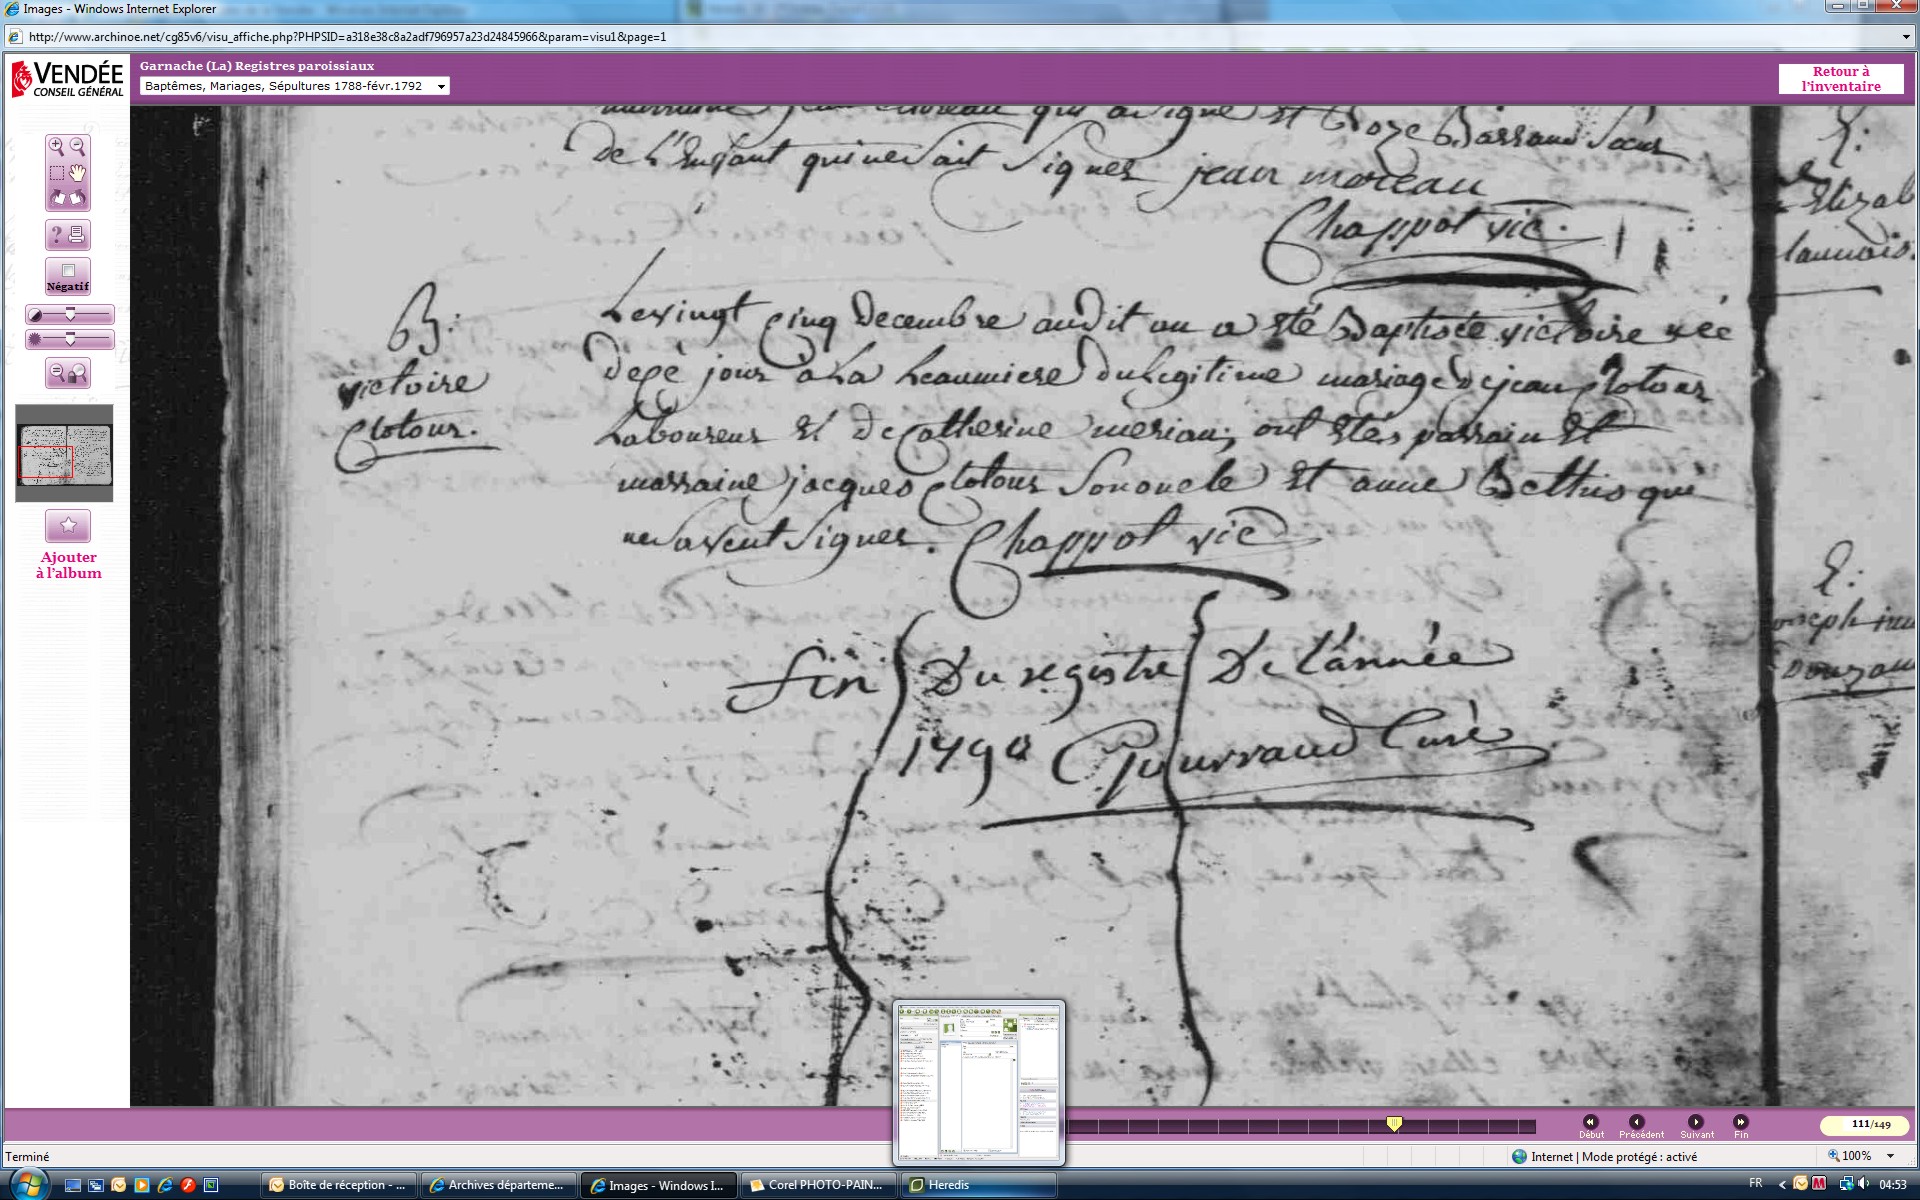 Images - Windows Internet Explorer
http://www.archinoe.net/cg85v6/visu_affiche.php?PHPSID=a318e38c8a2adf796957a23d24845966&param=visu1&page=1
VENDÉE
CONSEIL GÉNÉRAL
Garnache (La) Registres paroissiaux
Baptêmes, Mariages, Sépultures 1788-févr.1792
Retour à
l'inventaire
Négatif
Ajouter
à l'album
qui a signé et Roze Barraud Sœur
de L'Enfant qui ne sait Signer jean moreau
Chappot vic.
B:
victoire
Clotour.
Le vingt Cinq Decembre audit an a Eté Baptisée victoire née
de cè jour à La heaumiere Du Legitime mariage de jean Clotour
Laboureur Et de Catherine meriau; ont Etés parrain Et
marraine jacques Clotour Son oncle Et anne Bethis qui
ne Savent Signer. Chappot vic
fin Du registre De L'année
1790 Gourraud Curé
111/149
Début
Précédent
Suivant
Fin
Terminé
Internet | Mode protégé : activé
100%
Boîte de réception - ...
Archives départeme...
Images - Windows I...
Corel PHOTO-PAIN...
Heredis
FR
04:53